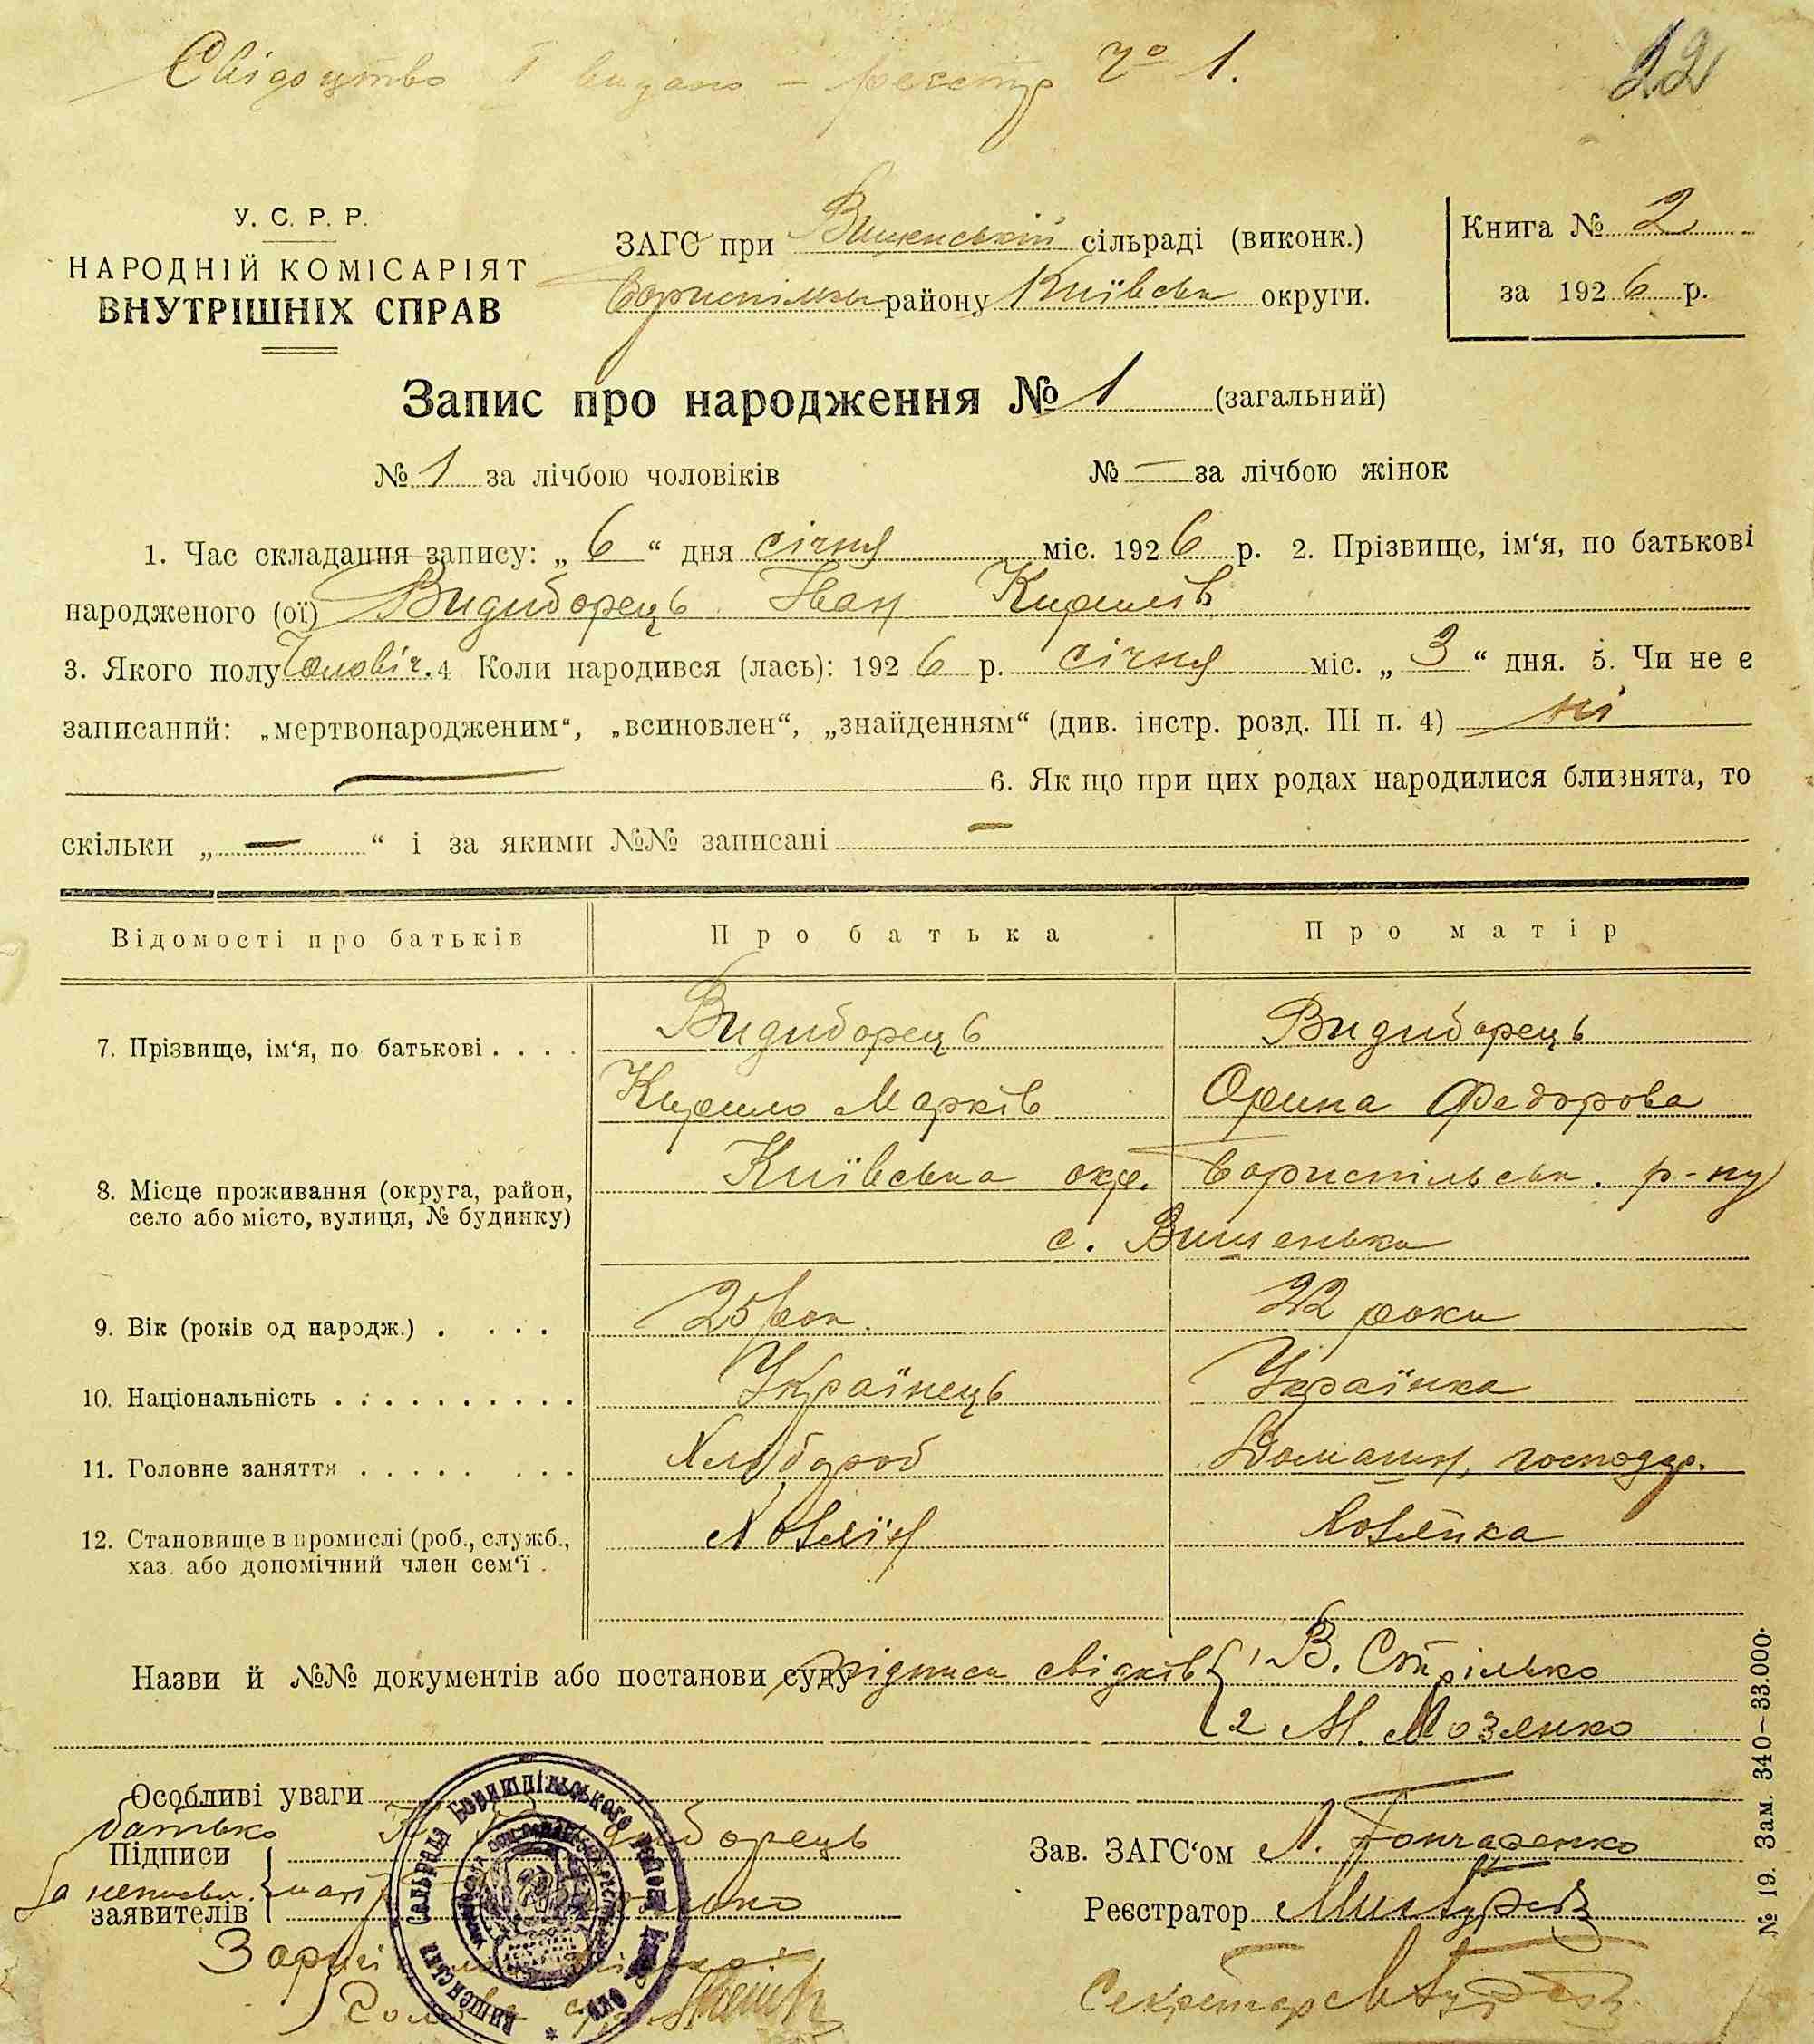 Свідоцтво I видано – реєстр № 1.
22
У. С. Р. Р.
НАРОДНІЙ КОМІСАРІЯТ
ВНУТРІШНІХ СПРАВ
ЗАГС при Вишенській сільраді (виконк.)
Бориспільськ району Київськ округи.
Книга № 2
за 1926 р.
Запис про народження № 1 (загальний)
№ 1 за лічбою чоловіків № — за лічбою жінок
1. Час складання запису: „ 6 “ дня січня міс. 1926 р. 2. Прізвище, ім‘я, по батькові
народженого (ої) Видиборець Іван Кирилів
3. Якого полу Чоловіч. 4 Коли народився (лась): 1926 р. січня міс. „ 3 “ дня. 5. Чи не є
записаний: „мертвонародженим“, „всиновлен“, „знайденням“ (див. інстр. розд. III п. 4) ні
— 6. Як що при цих родах народилися близнята, то
скільки „ — “ і за якими №№ записані —
Відомості про батьків Про батька Про матір
7. Прізвище, ім‘я, по батькові . . . . Видиборець Видиборець
Кирило Марків Орина Федорова
8. Місце проживання (округа, район, Київська окр. Бориспільськ. р-ну
село або місто, вулиця, № будинку)
с. Вишенька
9. Вік (років од народж.) . . . . 25 рок. 22 роки
10. Національність . . . . . . . . . . Українець Українка
11. Головне заняття . . . . . . . . Хлібороб Домашн. господар.
12. Становище в промислі (роб., служб., Хозяїн Хозяйка
хаз. або допомічний член сем‘ї .
Назви й №№ документів або постанови суду підписи свідків { 1 В. Стрілько
2 М. Мозянко
Особливі уваги
батько
Підписи К. Видиборець
за неписьм. мат
заявителів
Зав. ЗАГС‘ом Л. Гончаренко
Реєстратор
Секретар
ВИШЕНСЬКА СІЛЬРАДА БОРИШПІЛЬСЬКОГО РАЙОНУ
№ 19. Зам. 340–33.000.